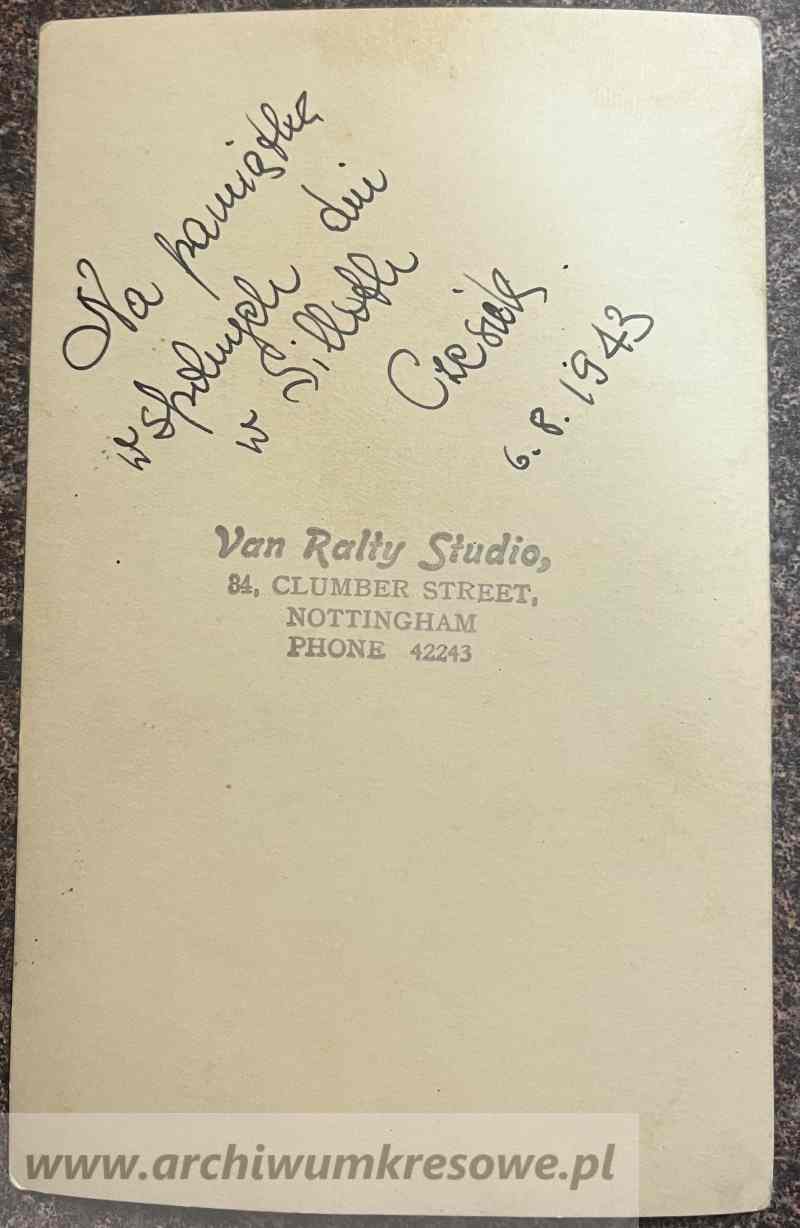 Na pamiątkę
wspólnych dni
w Silloth
Czesiek
6.8.1943
Van Ralty Studio,
84, CLUMBER STREET,
NOTTINGHAM
PHONE 42243
www.archiwumkresowe.pl